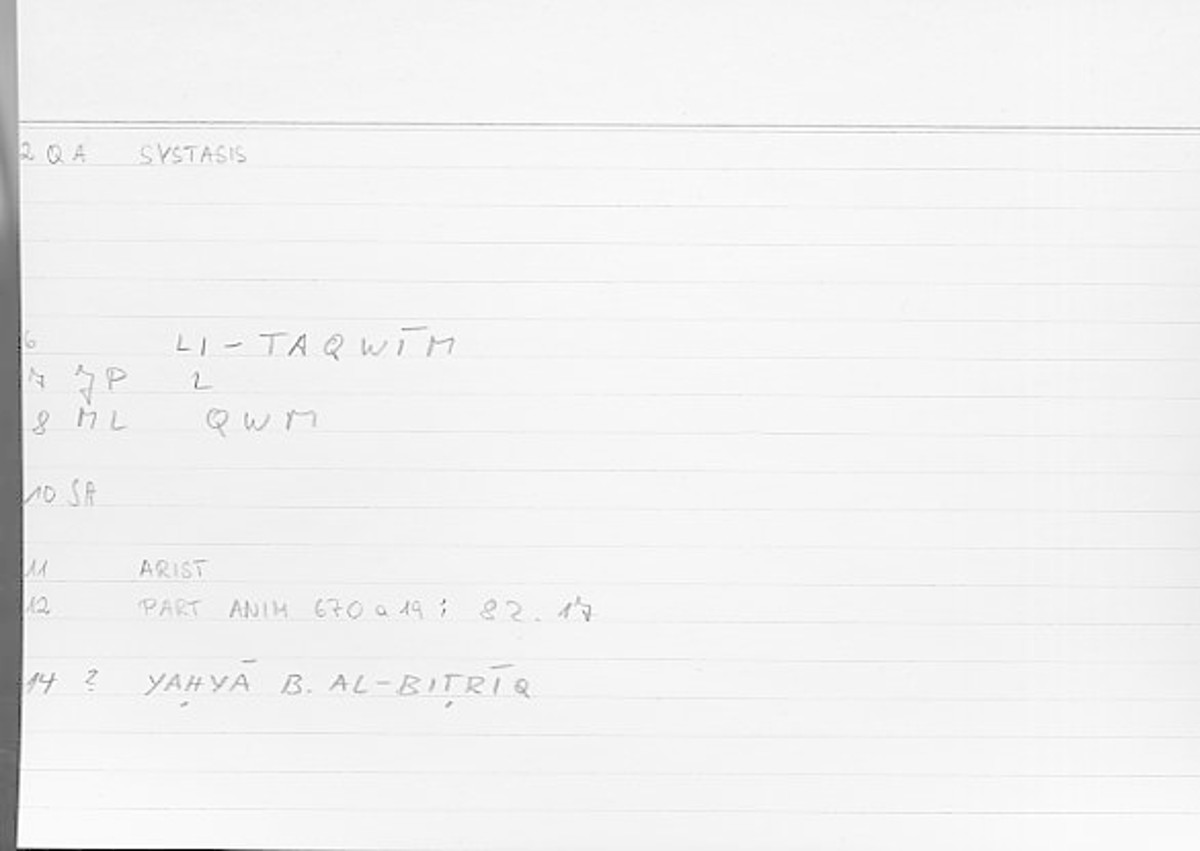 2 QA SYSTASIS
6 LI-TAQWĪM
7 JP 2
8 ML QWM
10 SA
11 ARIST
12 PART ANIM 670 a 19 ; 82.17
14 ? YAḤYĀ B. AL-BIṬRĪQ